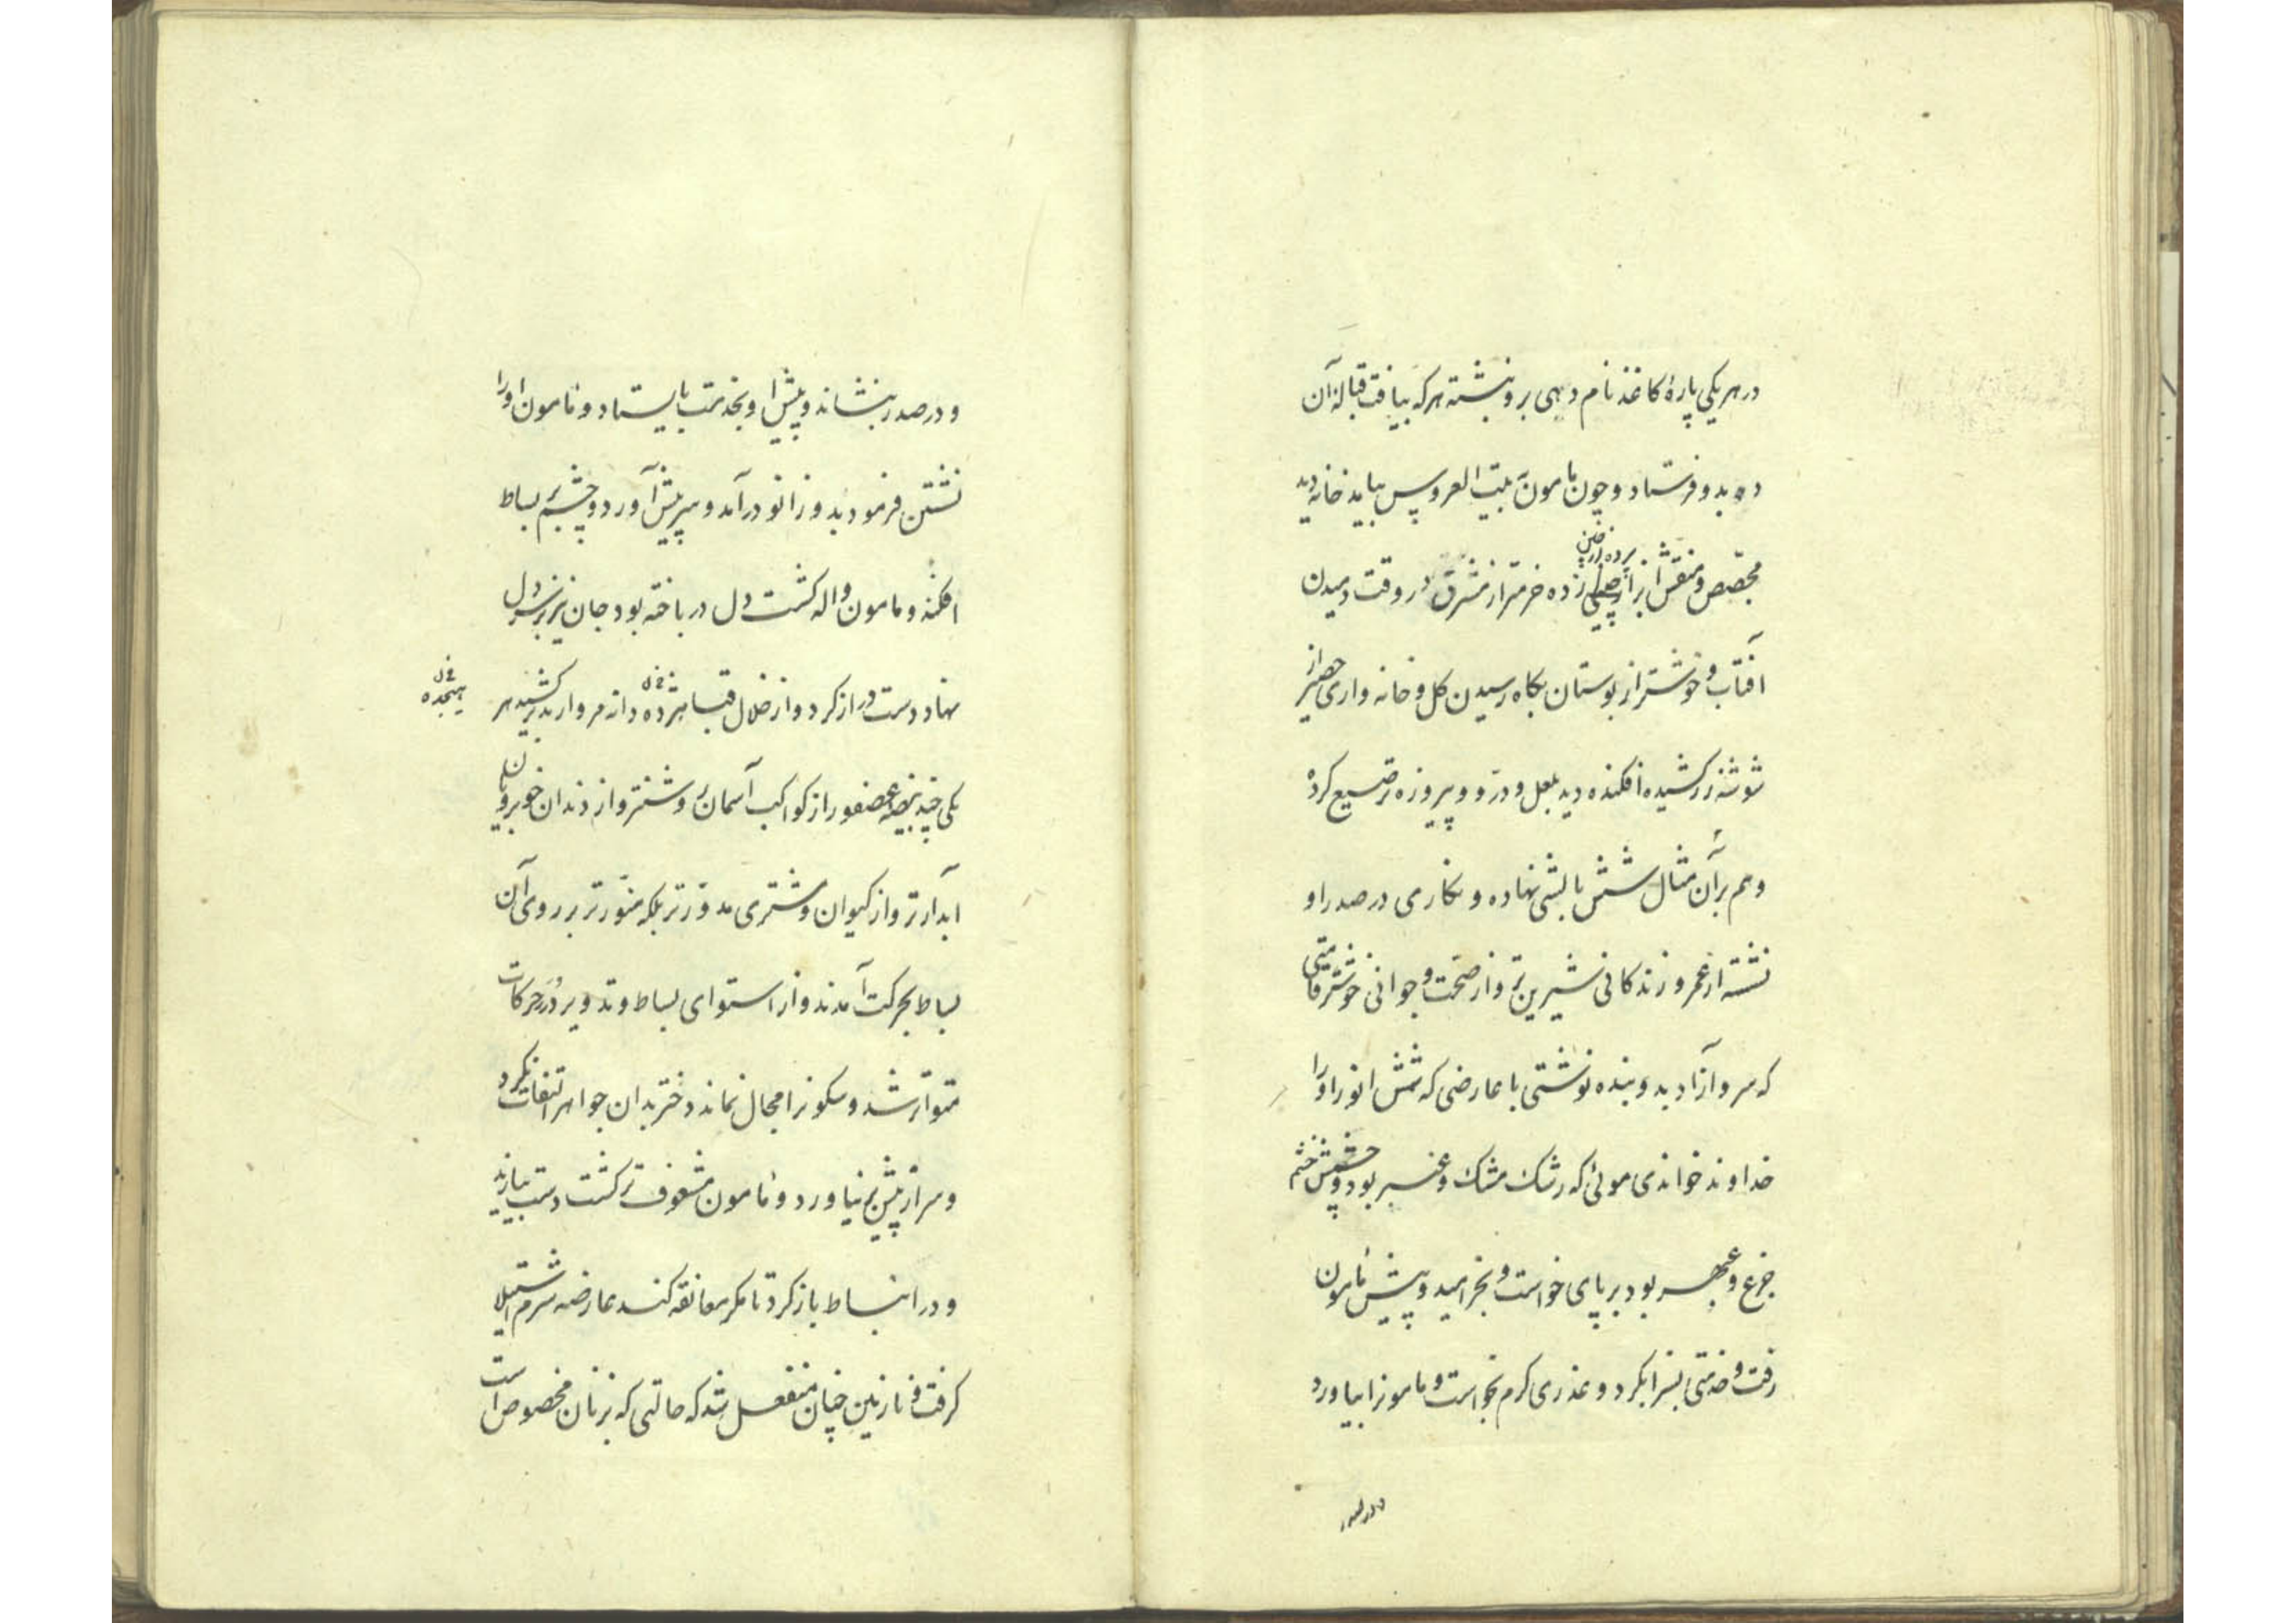 در هر یکی پارهٔ کاغذ نام دیهی برو نبشته هر که بیافت قبالهٔ آن
ده بدو فرستاد و چون مأمون به بیت العروس بیامد خانه دید
مجصص و منقش ازار چینی زده خرم‌تر از مشرق در وقت دمیدن
پرده ازچین
آفتاب و خوشتر از بوستان بگاه رسیدن گل و خانه واری حصیر از
شوشهٔ زر کشیده افکنده دید بلعل و درّ و پیروزه ترصیع کرده
و هم بر آن مثال شش بالشی نهاده و نگاری در صدر او
نشسته از عمر و زندگانی شیرین‌تر و از صحت و جوانی خوشتر قامتی
که سرو آزاد بدو بنده نوشتی با عارضی که شمس انور او را
خداوند خواندی موئی که رشک مشک و عنبر بود و چشمش خشم
جزع و عبهر بود بر پای خواست و بخرامید و پیش مأمون
رفت و خدمتی بسزا بکرد و عذری گرم بخواست و مامونرا بیاورد
و در صدر
و در صدر بنشاند و پیش او بخدمت بایستاد و مأمون او را
نشستن فرمود بدو زانو درآمد و سر پیش آورد و چشم بر بساط
افکند و مامون واله گشت دل در باخته بود جان نیز بر سر دل
نهاد دست دراز کرد و از خلال قبا هژده دانه مروارید برکشید هر
هیجده
یکی چند بیضه عصفور از کواکب آسمان روشنتر و از دندان خوبرویان
آبدارتر و از کیوان و مشتری مدوّرتر بلکه منوّرتر بر روی آن
بساط بحرکت آمدند و از استوای بساط و تدویر دُرَر حرکات
متواتر شد و سکونرا مجال نماند دختر بدان جواهر التفات نکرد
و سر از پیش بر نیاورد و مأمون مشعوف‌تر گشت دست بیازید
و در انبساط باز کرد تا مگر معانقه کند عارضه شرم استیلا
گرفت و نازنین چنان منفعل شد که حالتی که بزنان مخصوص است